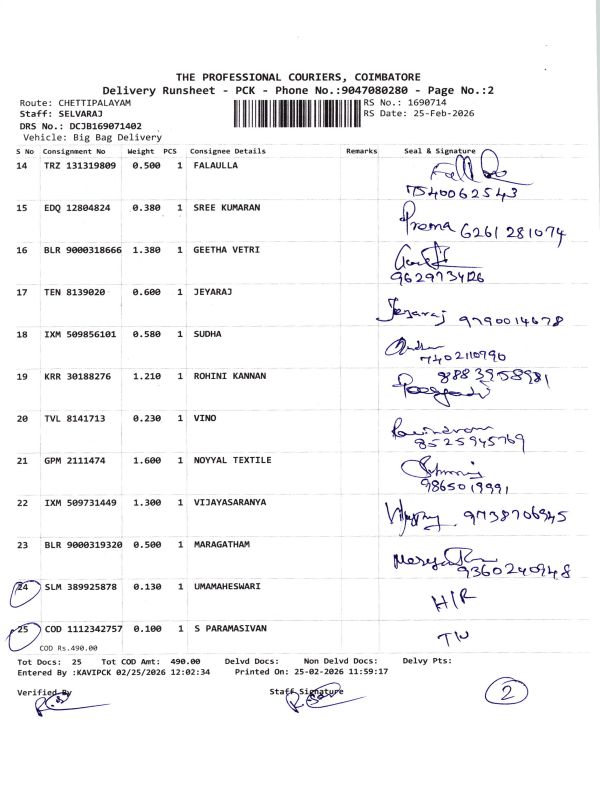 THE PROFESSIONAL COURIERS, COIMBATORE
Delivery Runsheet - PCK - Phone No.:9047080280 - Page No.:2
Route: CHETTIPALAYAM RS No.: 1690714
Staff: SELVARAJ RS Date: 25-Feb-2026
DRS No.: DCJB169071402
Vehicle: Big Bag Delivery
S No Consignment No Weight PCS Consignee Details Remarks Seal & Signature
14 TRZ 131319809 0.500 1 FALAULLA
7540062543
15 EDQ 12804824 0.380 1 SREE KUMARAN
Prema 6261281074
16 BLR 9000318666 1.380 1 GEETHA VETRI
17 TEN 8139020 0.600 1 JEYARAJ
Jeyaraj 9790014678
18 IXM 509856101 0.580 1 SUDHA
7402110790
19 KRR 30188276 1.210 1 ROHINI KANNAN
8883958981
20 TVL 8141713 0.230 1 VINO
8525945769
21 GPM 2111474 1.600 1 NOYYAL TEXTILE
9865019991
22 IXM 509731449 1.300 1 VIJAYASARANYA
9738706945
23 BLR 9000319320 0.500 1 MARAGATHAM
9360240948
24 SLM 389925878 0.130 1 UMAMAHESWARI
H/R
25 COD 1112342757 0.100 1 S PARAMASIVAN
COD Rs.490.00
Tot Docs: 25 Tot COD Amt: 490.00 Delvd Docs: Non Delvd Docs: Delvy Pts:
Entered By :KAVIPCK 02/25/2026 12:02:34 Printed On: 25-02-2026 11:59:17
Verified By Staff Signature
2